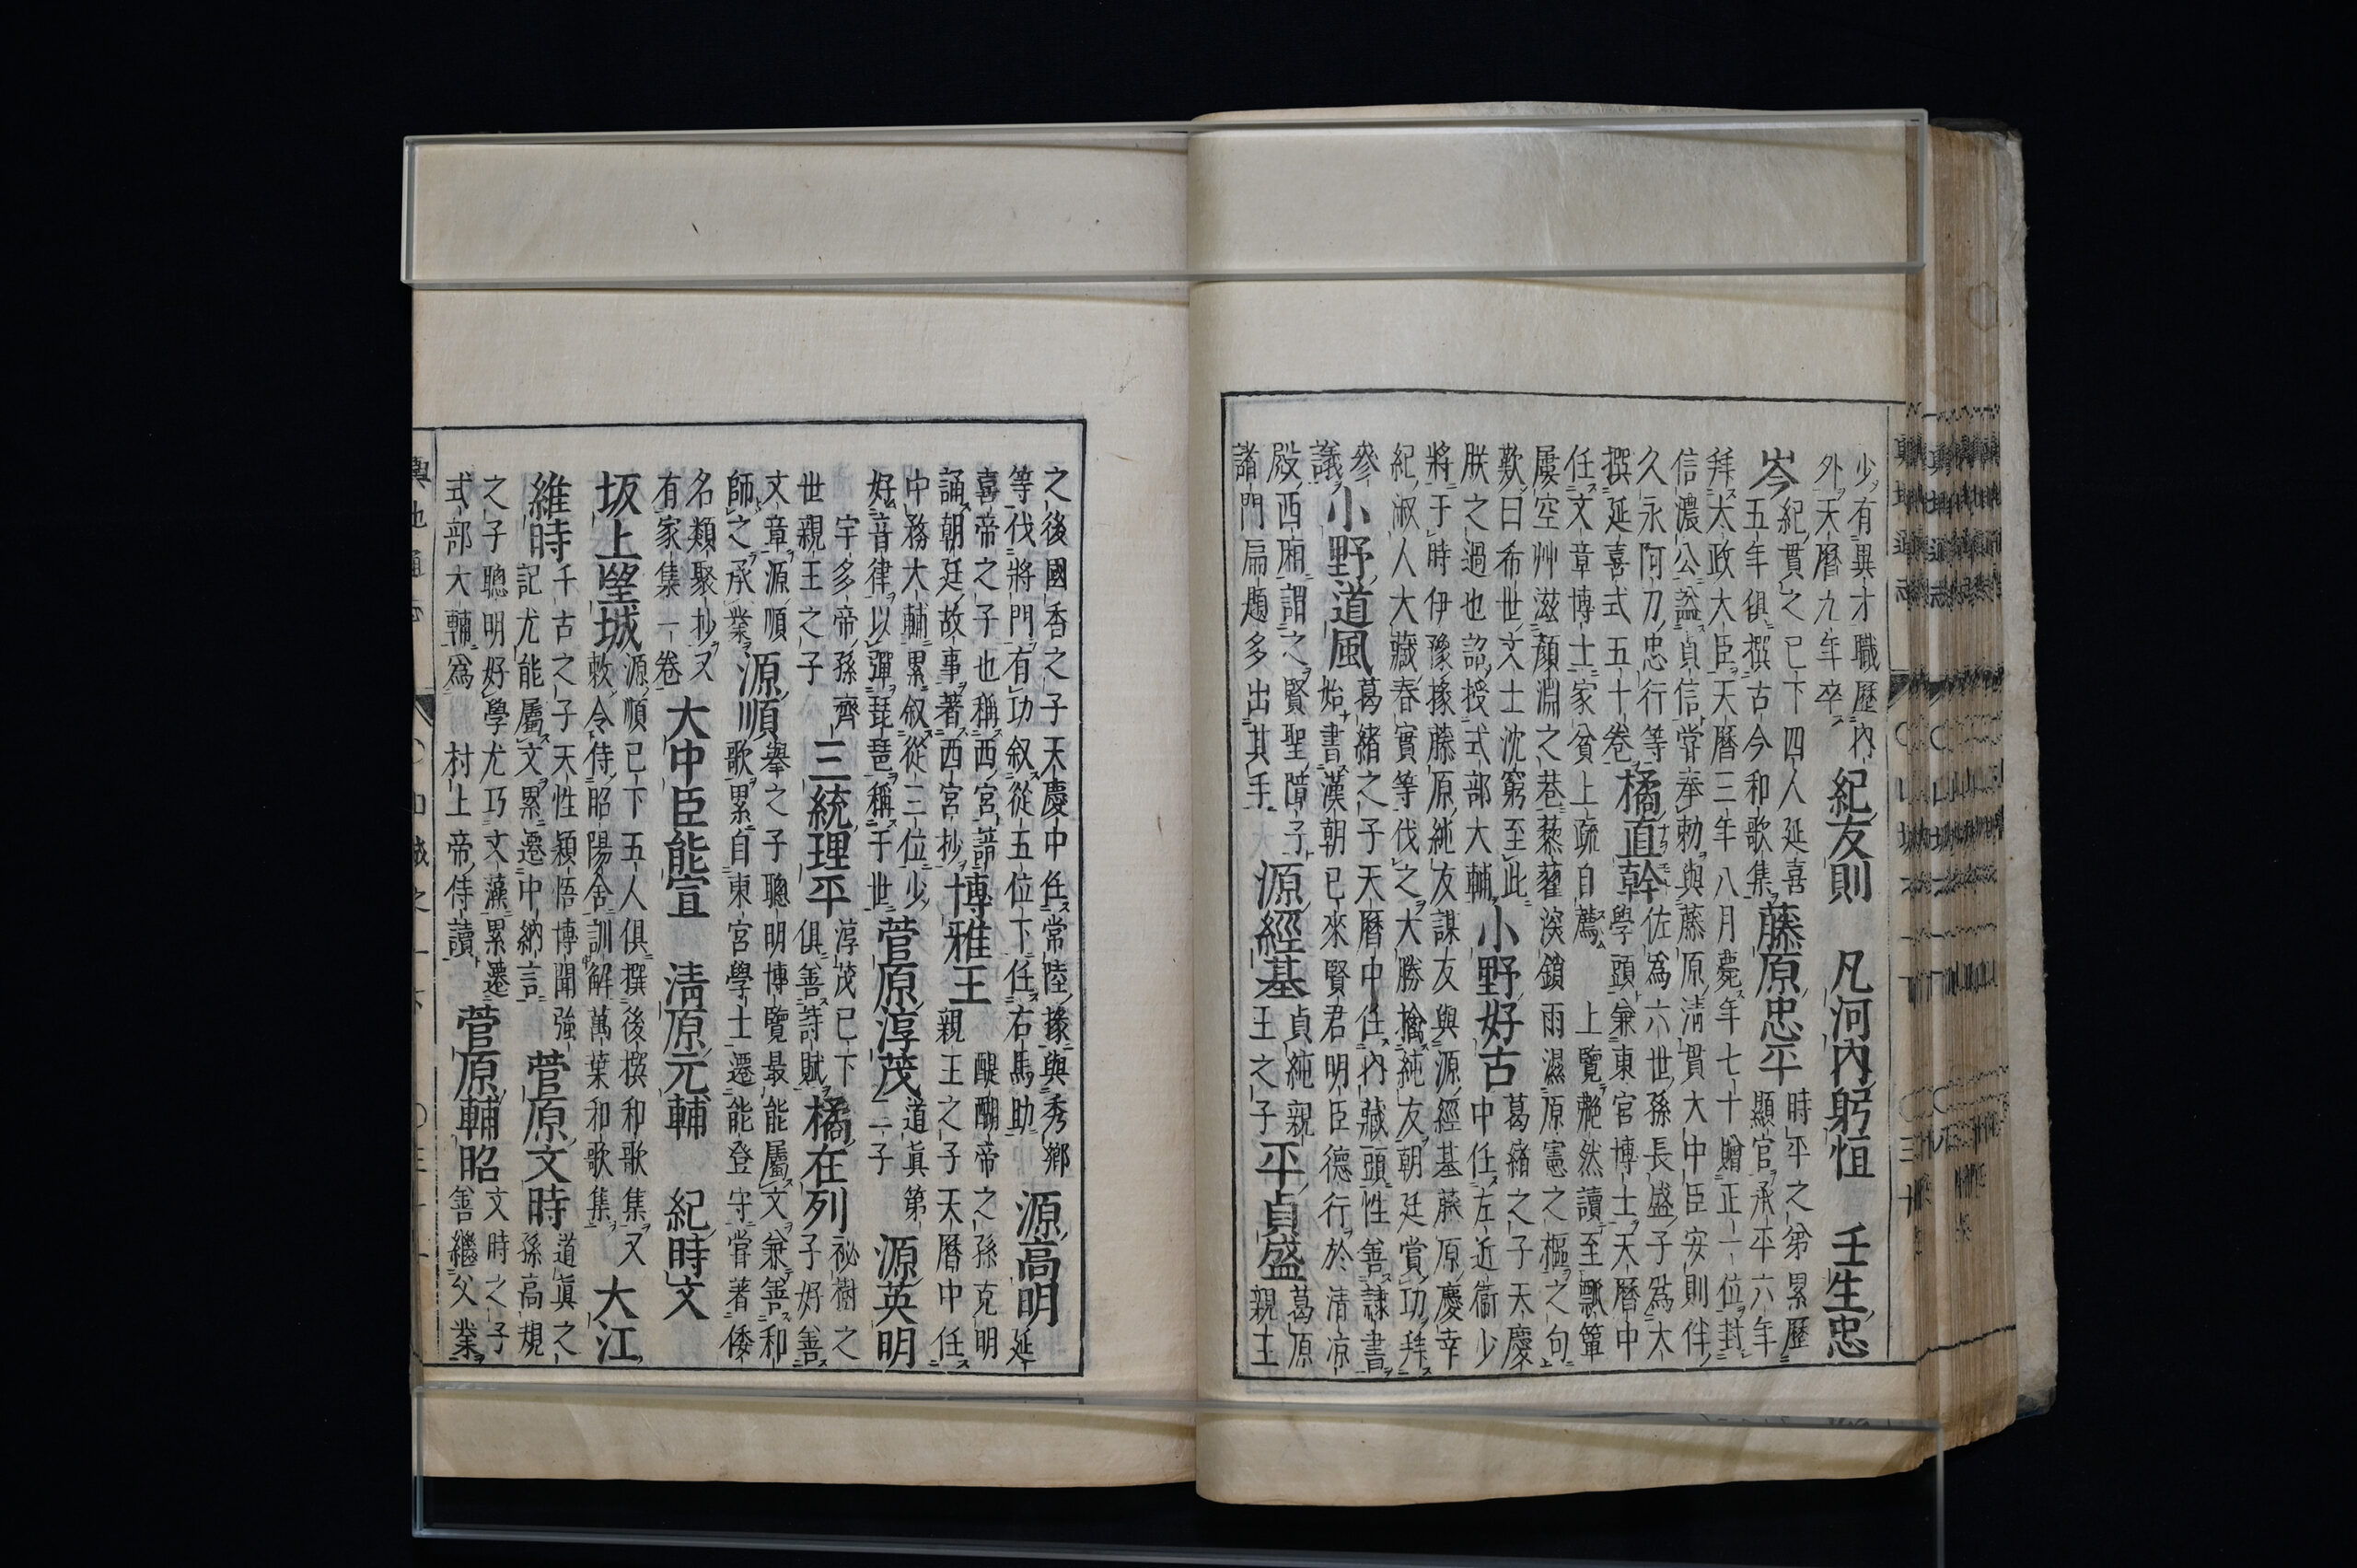 少有異才職歷內
外天曆九年卒
紀友則　凡河內躬恒　壬生忠
岑
紀貫之已下四人延喜
五年俱撰古今和歌集
藤原忠平
時平之弟累歷
顯官承平六年
拜太政大臣天曆三年八月薨年七十贈正一位封
信濃公謚貞信嘗奉勅與藤原淸貫大中臣安則伴
久永阿刀忠行等
撰延喜式五十卷
橘直幹
佐爲六世孫長盛子爲太
學頭兼東宮博士天曆中
任文章博士家貧上疏自薦　上覽艴然讀至瓢簞
屢空艸滋顏淵之巷蔾藋深鎖雨濕原憲之樞之句
歎曰希世文士沈窮至此
朕之過也詔授式部大輔
小野好古
葛緒之子天慶
中任左近衞少
將于時伊豫掾藤原純友謀友與源經基藤原慶幸
紀淑人大藏春實等伐之大勝擒純友朝廷賞功拜
參
議
小野道風
葛緒之子天曆中任內藏頭性善隷書
始書漢朝已來賢君明臣德行於清凉
殿西廂謂之賢聖障子
諸門扁題多出其手
源經基
貞純親
王之子
平貞盛
葛原
親王
之後國香之子天慶中任常陸掾與秀鄉
等伐將門有功叙從五位下任右馬助
源高明
延
喜帝之子也稱西宮諳
誦朝廷故事著西宮抄
博雅王
醍醐帝之孫克明
親王之子天曆中任
中務大輔累叙從三位少
好音律以彈琵琶稱于世
菅原淳茂
道眞第
二子
源英明
宇多帝孫齊
世親王之子
三統理平
淳茂已下
俱善詩賦
橘在列
祕樹之
子好善
文章源順
師之承業
源順
擧之子聰明博覽最能屬文兼善和
歌累自東宮學士遷能登守嘗著倭
名類聚抄又
有家集一卷
大中臣能宣　淸原元輔　紀時文
坂上望城
源順已下五人俱撰後撰和歌集又
敕令侍昭陽舍訓解萬葉和歌集
大江
維時
千古之子天性穎悟博聞強
記尤能屬文累遷中納言
菅原文時
道眞之
孫高規
之子聰明好學尤巧文藻累遷
式部大輔爲村上帝侍讀
菅原輔昭
文時之子
善繼父業